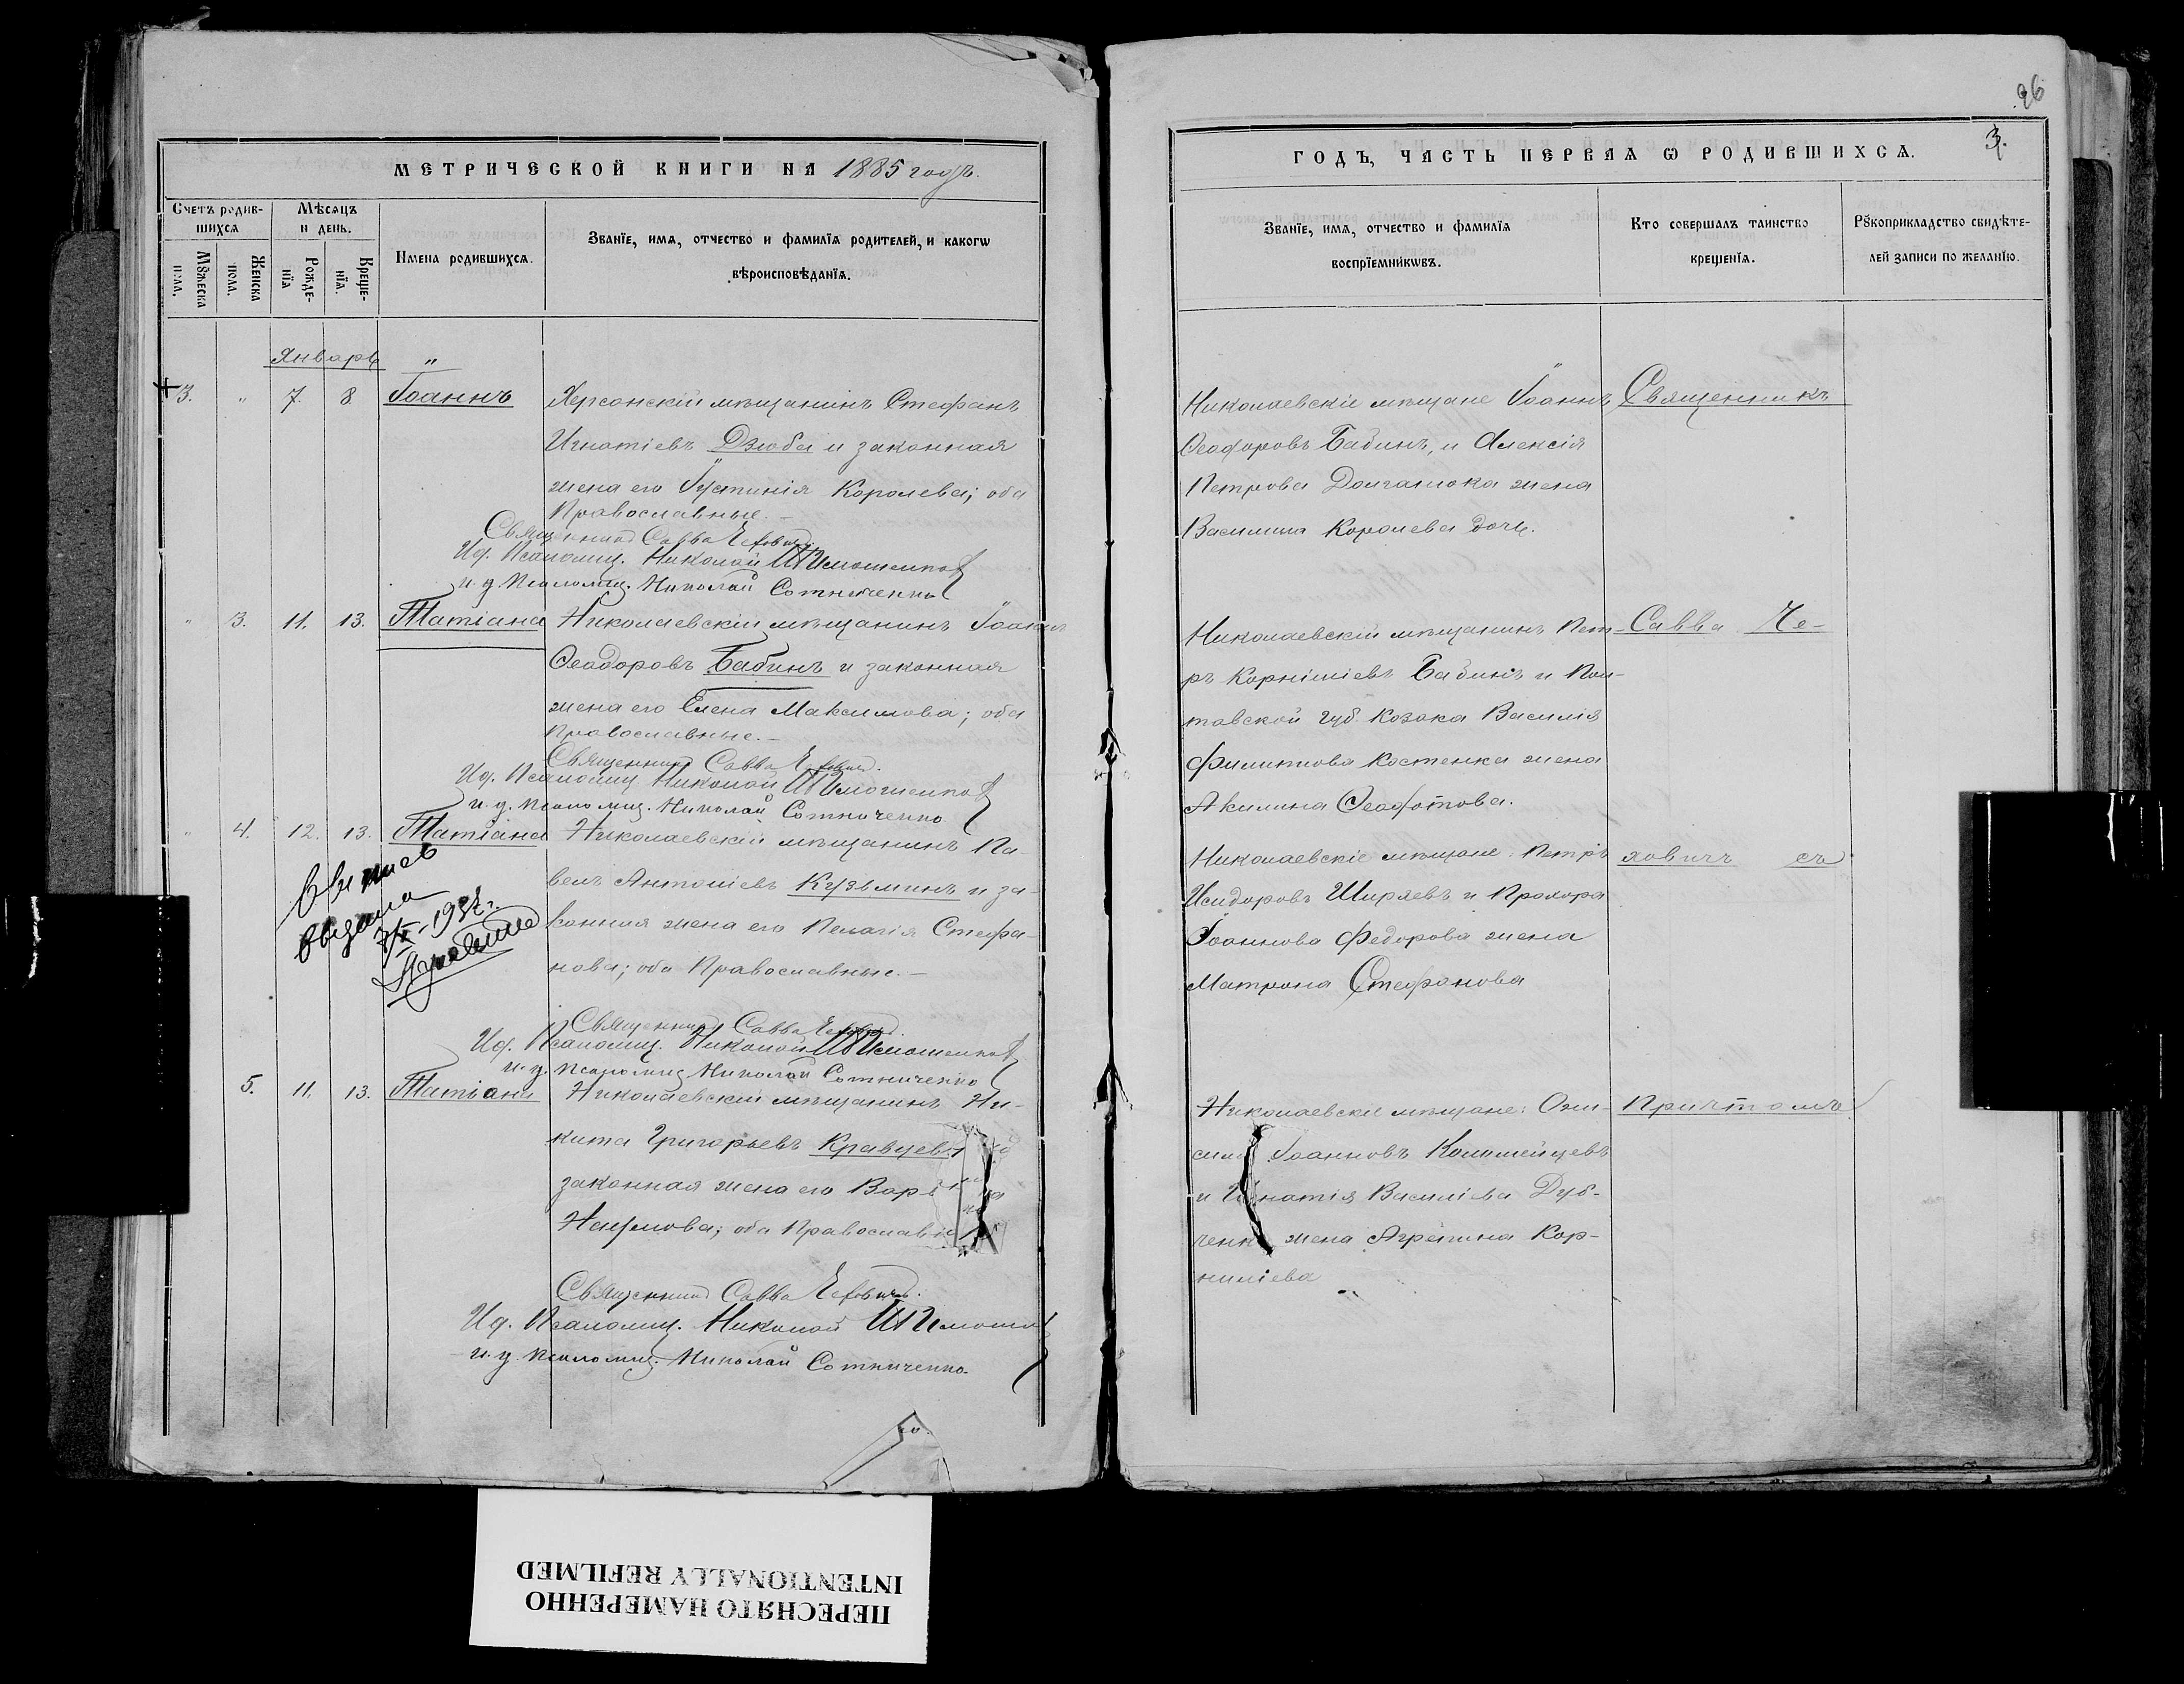 МЕТРИЧЕСКОЙ КНИГИ НА 1885 годъ.
Счетъ родив-
шихсѧ
Мѣсѧцъ
и день.
Имена родившихсѧ.
Званїе, имѧ, отчество и фамилїѧ родителей, и какогѡ
вѣроисповѣданїѧ.
Мꙋжеска
пола.
Женска
пола.
Рожде-
нїѧ
Креще-
нїѧ.
Январь "
3. " 7. 8 Іоаннъ
Херсонскій мѣщанинъ Стефанъ
Игнатіевъ Дзюба и законная
жена его Іустинія Королева; оба
Православные.-
Священникъ Савва
Ид. Псаломщ. Николай
и. д. Псаломщ. Николай Сотниченко
" 3. 11. 13. Татіана
Николаевскій мѣщанинъ Іоаннъ
Ѳеодоровъ Бабинъ и законная
жена его Елена Максимова; оба
Православные.-
Священникъ Савва
Ид. Псаломщ. Николай
и. д. Псаломщ. Николай Сотниченко
" 4. 12. 13. Татіана
Николаевскій мѣщанинъ Па-
велъ Антоніевъ Кузьминъ и за-
конная жена его Пелагія Стефа-
нова; оба Православные.-
выдана
1932 г.
Священникъ Савва
Ид. Псаломщ. Николай
и. д. Псаломщ. Николай Сотниченко
5. 11. 13. Татіана
Николаевскій мѣщанинъ Ни-
кита Григорьевъ Кравцевъ
законная жена его
Наумова; оба
Священникъ Савва
Ид. Псаломщ. Николай
и. д. Псаломщ. Николай Сотниченко.
26
3.
ГОДЪ, ЧАСТЬ ПЕРВАѦ Ѡ РОДИВШИХСѦ.
Званїе, имѧ, отчество и фамилїѧ
воспрїемникѡвъ.
Кто совершалъ таинство
крещенїѧ.
Рꙋкоприкладство свидѣте-
лей записи по желанїю.
Николаевскіе мѣщане Іоаннъ
Ѳеодоровъ Бабинъ, и Алексія
Петрова жена
Василиса Королева дочь.
Священникъ
Николаевскій мѣщанинъ Пет-
ръ Корниліевъ Бабинъ и Пол-
тавской губ. козака Василія
Филиппова Костенка жена
Акилина Ѳеодотова.
Савва Че-
Николаевскіе мѣщане Петръ
Исидоровъ Ширяевъ и Прохора
Іоаннова Федорова жена
Матрона Стефанова
ховичъ съ
Николаевскіе мѣщане: Они-
Іоанновъ Коломейцевъ
и Игнатія Василіева Дуб-
жена Агрепина Кор-
ниліева
Причтомъ
ПЕРЕСНЯТО НАМЕРЕННО
INTENTIONALLY REFILMED